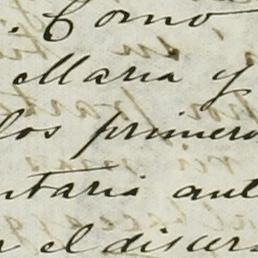 Como
Maria y
los primero
ntaria ant
el discur